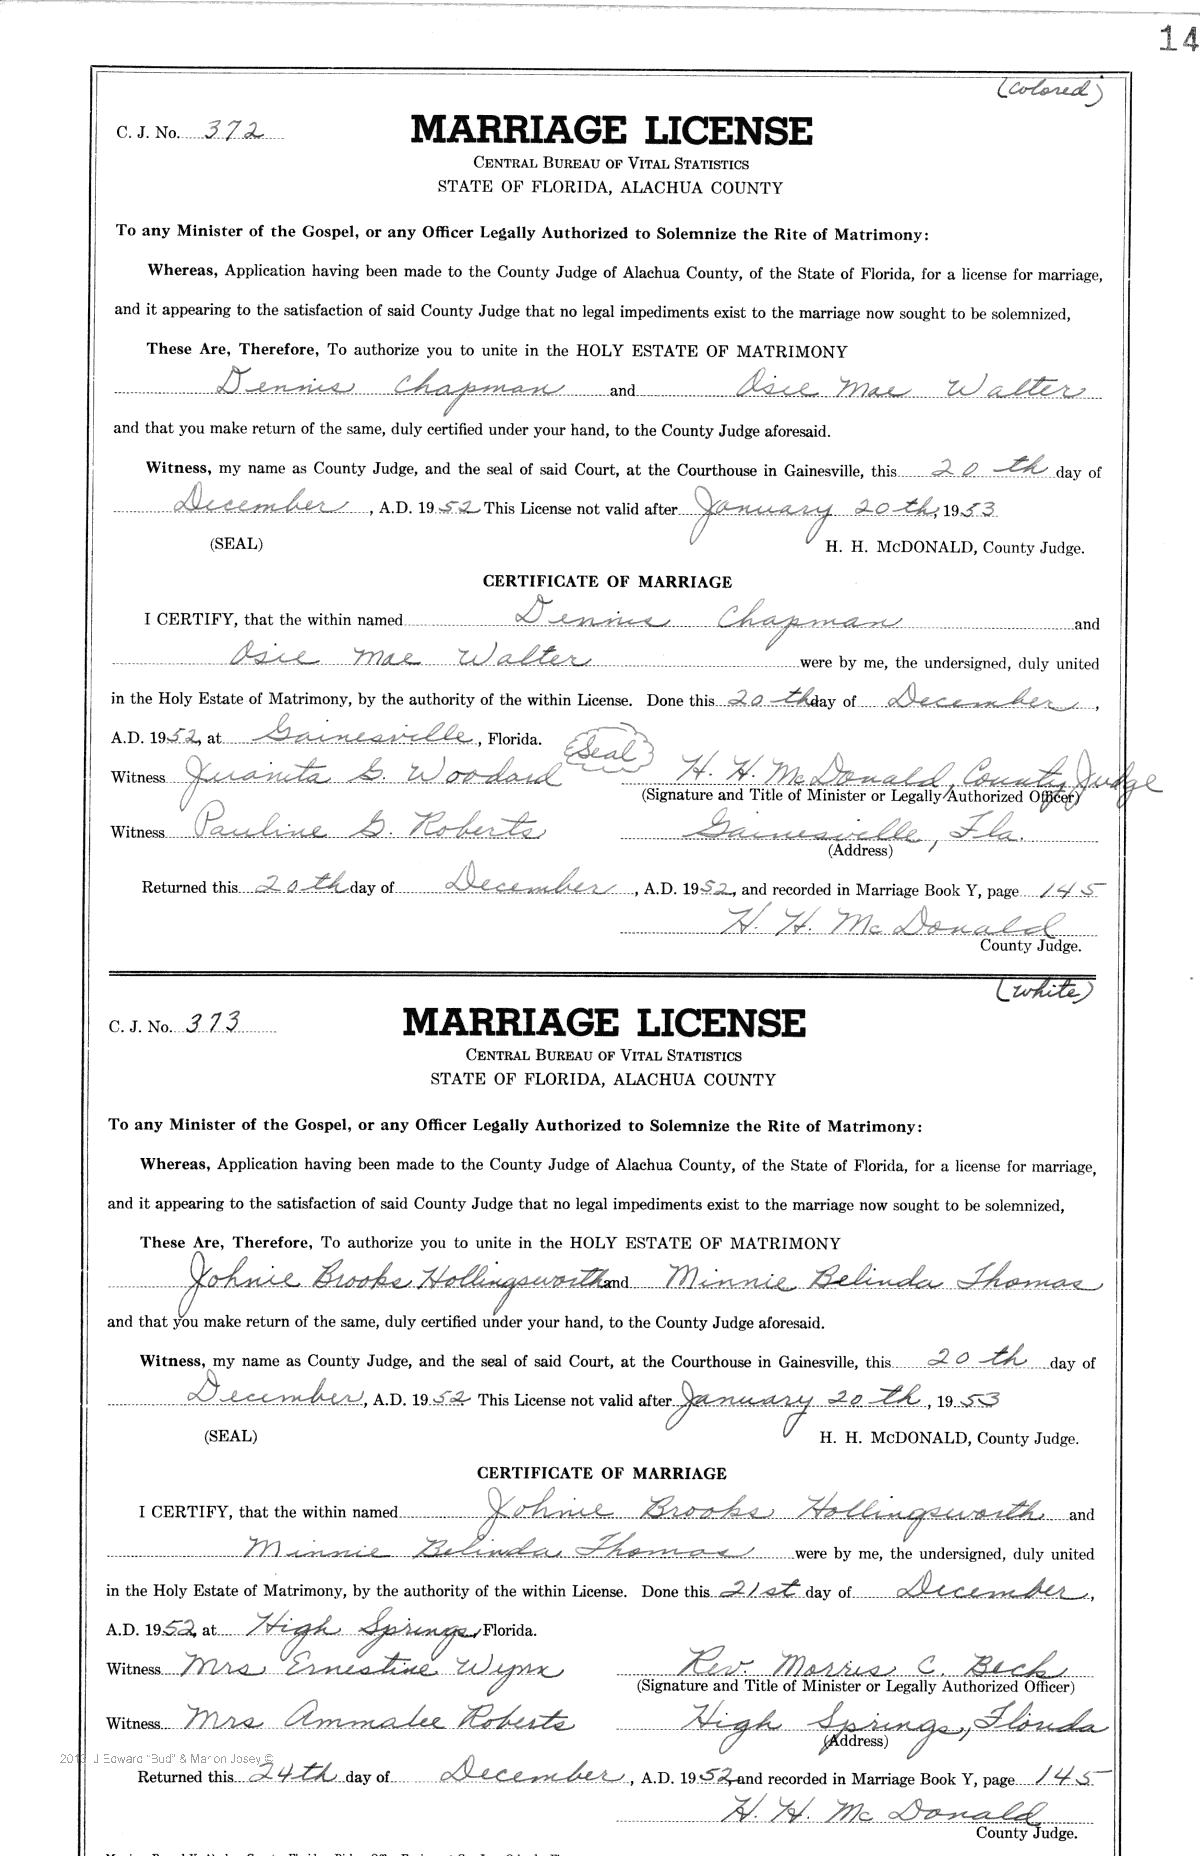 14
(colored)
C. J. No. 372
MARRIAGE LICENSE
CENTRAL BUREAU OF VITAL STATISTICS
STATE OF FLORIDA, ALACHUA COUNTY
To any Minister of the Gospel, or any Officer Legally Authorized to Solemnize the Rite of Matrimony:
Whereas, Application having been made to the County Judge of Alachua County, of the State of Florida, for a license for marriage,
and it appearing to the satisfaction of said County Judge that no legal impediments exist to the marriage now sought to be solemnized,
These Are, Therefore, To authorize you to unite in the HOLY ESTATE OF MATRIMONY
Dennis Chapman and Osie Mae Walter
and that you make return of the same, duly certified under your hand, to the County Judge aforesaid.
Witness, my name as County Judge, and the seal of said Court, at the Courthouse in Gainesville, this 20 th day of
December, A.D. 1952 This License not valid after January 20th, 1953
(SEAL) H. H. McDONALD, County Judge.
CERTIFICATE OF MARRIAGE
I CERTIFY, that the within named Dennis Chapman and
Osie Mae Walter were by me, the undersigned, duly united
in the Holy Estate of Matrimony, by the authority of the within License. Done this 20 th day of December,
A.D. 1952, at Gainesville, Florida. Seal
Witness Juanita G. Woodard H. H. McDonald, County Judge
(Signature and Title of Minister or Legally Authorized Officer)
Witness Pauline G. Roberts Gainesville, Fla.
(Address)
Returned this 20th day of December, A.D. 1952, and recorded in Marriage Book Y, page 145
H. H. McDonald
County Judge.
(white)
C. J. No. 373
MARRIAGE LICENSE
CENTRAL BUREAU OF VITAL STATISTICS
STATE OF FLORIDA, ALACHUA COUNTY
To any Minister of the Gospel, or any Officer Legally Authorized to Solemnize the Rite of Matrimony:
Whereas, Application having been made to the County Judge of Alachua County, of the State of Florida, for a license for marriage,
and it appearing to the satisfaction of said County Judge that no legal impediments exist to the marriage now sought to be solemnized,
These Are, Therefore, To authorize you to unite in the HOLY ESTATE OF MATRIMONY
Johnie Brooks Hollingsworth and Minnie Belinda Thomas
and that you make return of the same, duly certified under your hand, to the County Judge aforesaid.
Witness, my name as County Judge, and the seal of said Court, at the Courthouse in Gainesville, this 20 th day of
December, A.D. 1952 This License not valid after January 20 th, 1953
(SEAL) H. H. McDONALD, County Judge.
CERTIFICATE OF MARRIAGE
I CERTIFY, that the within named Johnie Brooks Hollingsworth and
Minnie Belinda Thomas were by me, the undersigned, duly united
in the Holy Estate of Matrimony, by the authority of the within License. Done this 21st day of December,
A.D. 1952, at High Springs, Florida.
Witness Mrs Ernestine Wynn Rev. Morris C. Beck
(Signature and Title of Minister or Legally Authorized Officer)
Witness Mrs Ammalee Roberts High Springs, Florida
(Address)
J Edward "Bud" & Marion Josey ©
Returned this 24th day of December, A.D. 1952, and recorded in Marriage Book Y, page 145
H. H. McDonald
County Judge.